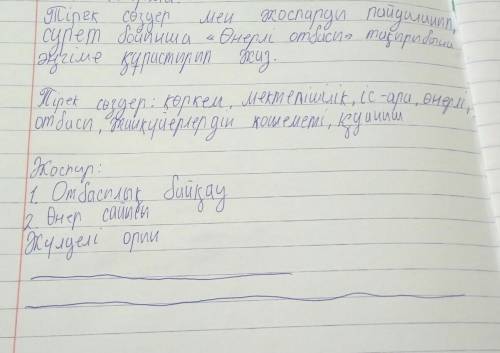 Тірек сөздер мен жоспарды пайдаланып,
сурет бойынша «Өнерлі отбасы» тақырыбына
әңгіме құрастырып жаз.
Тірек сөздер: көркем, мектепішілік, іс-ара, өнерлі,
отбасы, жанкүйерлердің қошеметі, қуаныш
Жоспар:
1. Отбасылық байқау
2. Өнер сайысы
Жүлделі орын